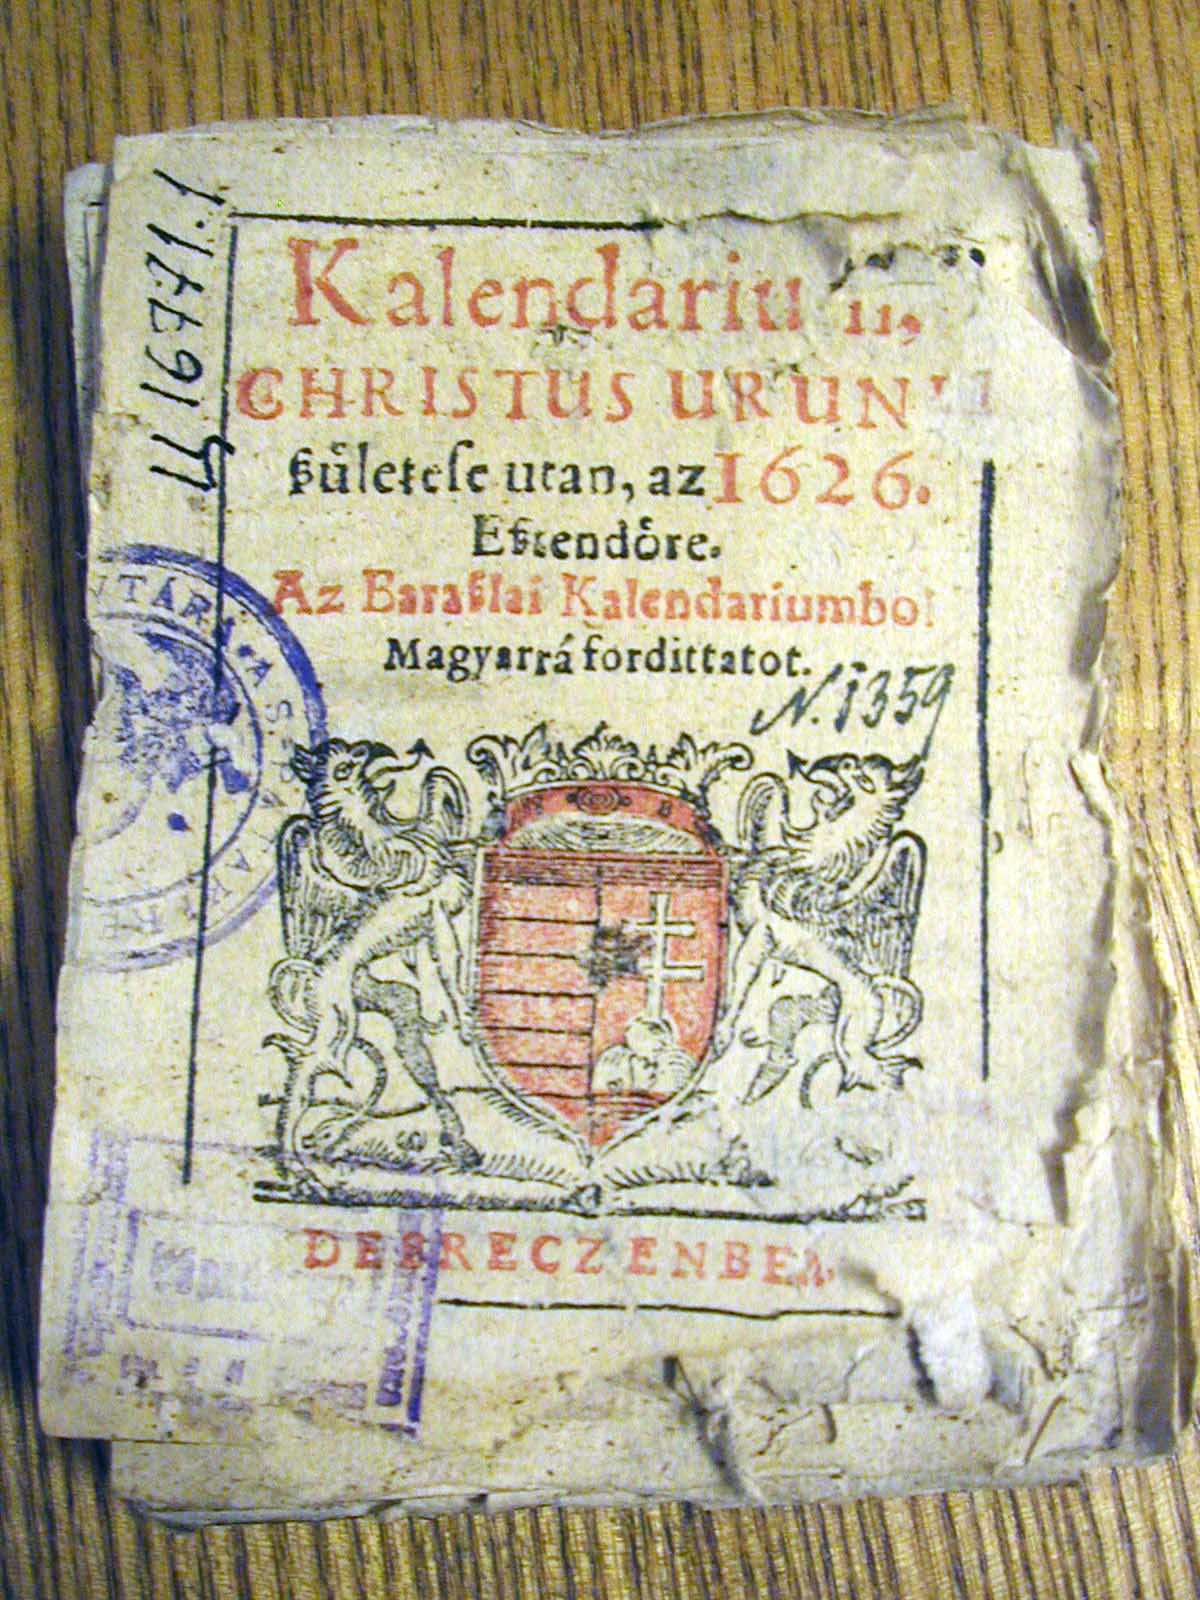 Kalendariu
CHRISTUS URUN
ßűletese utan, az 1626.
Eßtendőre.
Az Baraßlai Kalendariumbol
Magyarrá fordittatot.
N. 1359
DEBRECZENBEN.
16771.1